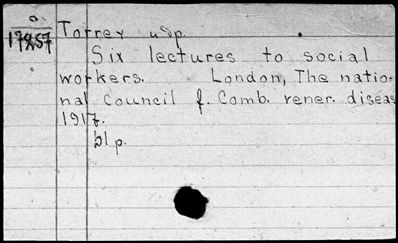 a
17857 Torrey udp.
Six lectures to social
workers. London, The natio-
nal Council f. Comb. vener. diseas
1917.
bl p.